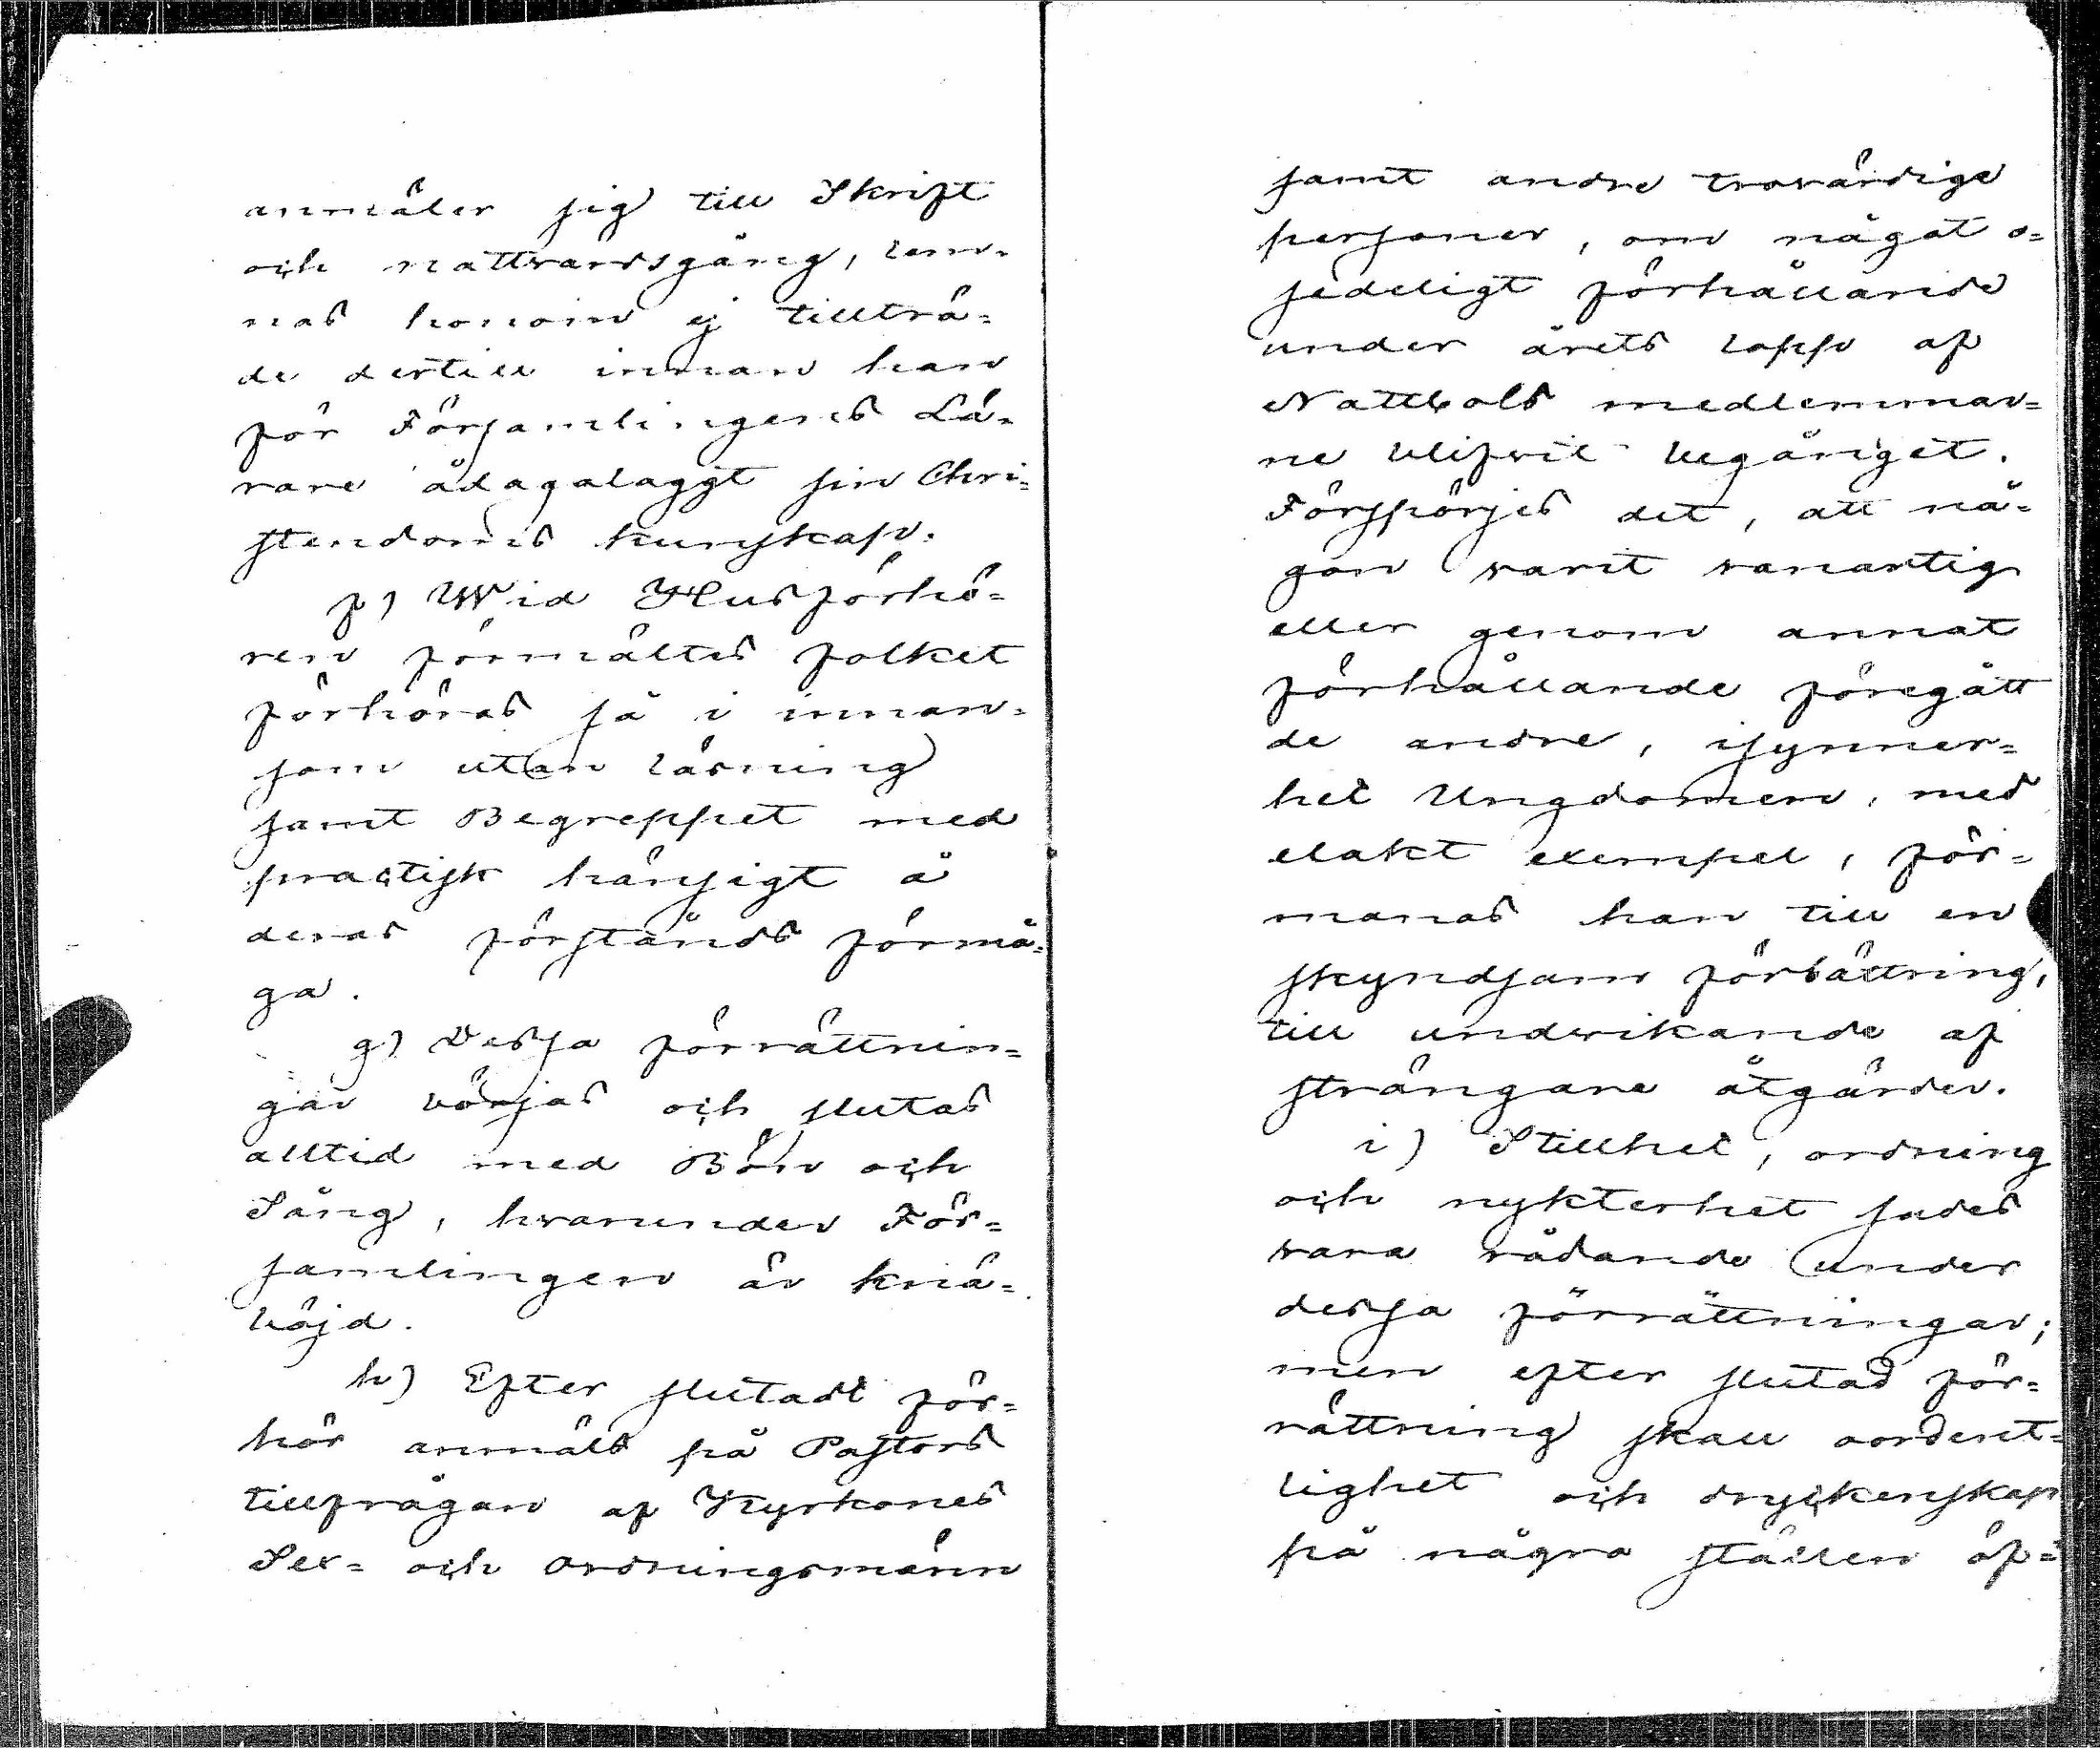 anmäler sig till Skrift
och nattvardsgång, lem-
nas honom ej tillträ=
de dertill innan han
för Församlingenes Lä-
rare ådagalaggt sin Chri=
stendoms kunskap.
f) Wid Husförhö=
ren förmältes folket
förhöras så i innan-
som utan läsning
samt Begreppet med
practisk hänsigt å
deras förstånds förmå=
ga.
g) Dessa förrättnin=
gar börjas och slutas
alltid med Bön och
Sång, hvarunder För=
samlingen är knä=
böjd.
h) Efter slutadt för=
hör anmäls på Pastors
tillfrågan af Kyrkones
Sex= och ordningsmänn
samt andre trovärdige
personer, om något o=
sedeligt förhållande
under årets lopp af
Nattbols medlemmar=
ne blifvit begånget.
Försspörjes det, att nå=
gon varit vanartig
eller genom annat
förhållande föregått
de andre, isynner=
het Ungdomen, med
elakt exempel, för=
manas han till en
skyndsam förbättring,
till undvikande af
strängare åtgärder.
i) Stillhet, ordning
och nykterhet sades
vara rådande under
dessa förrättningar;
men efter slutad för=
rättning skall oordent=
lighet och dryckenskap
på några ställen öf=